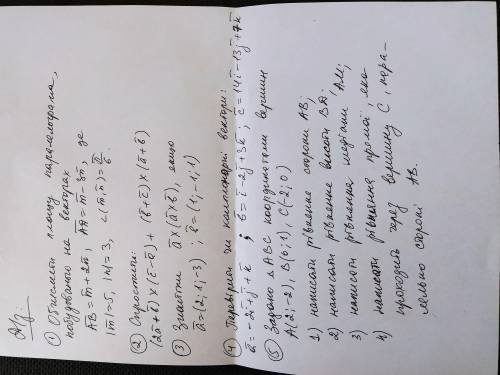 Д/з:
① Обчислити площу паралелограма,
побудованого на векторах
AB = m̄ + 2n̄, AD = m̄ - 3n̄, де
|m̄| = 5, |n̄| = 3, ∠(m̄, n̄) = π/6.
② Спростити:
(2ā + b̄) × (c̄ - ā) + (b̄ + c̄) × (ā + b̄)
③ Знайти ā × (ā × b̄), якщо
ā = (2; 1; -3); b̄ = (1; -1; 1)
④ Перевірити чи компланарні вектори:
ā = -2ī + j̄ + k̄; b̄ = ī - 2j̄ + 3k̄; c̄ = 14ī - 13j̄ + 7k̄
⑤ Задано △ABC координатами вершин
A(2; -2), B(6; 1), C(-2; 0)
1) написати рівняння сторони AB;
2) написати рівняння висоти BD;
3) написати рівняння медіани AM;
4) написати рівняння прямої, яка
проходить через вершину C, пара-
лельно стороні AB.